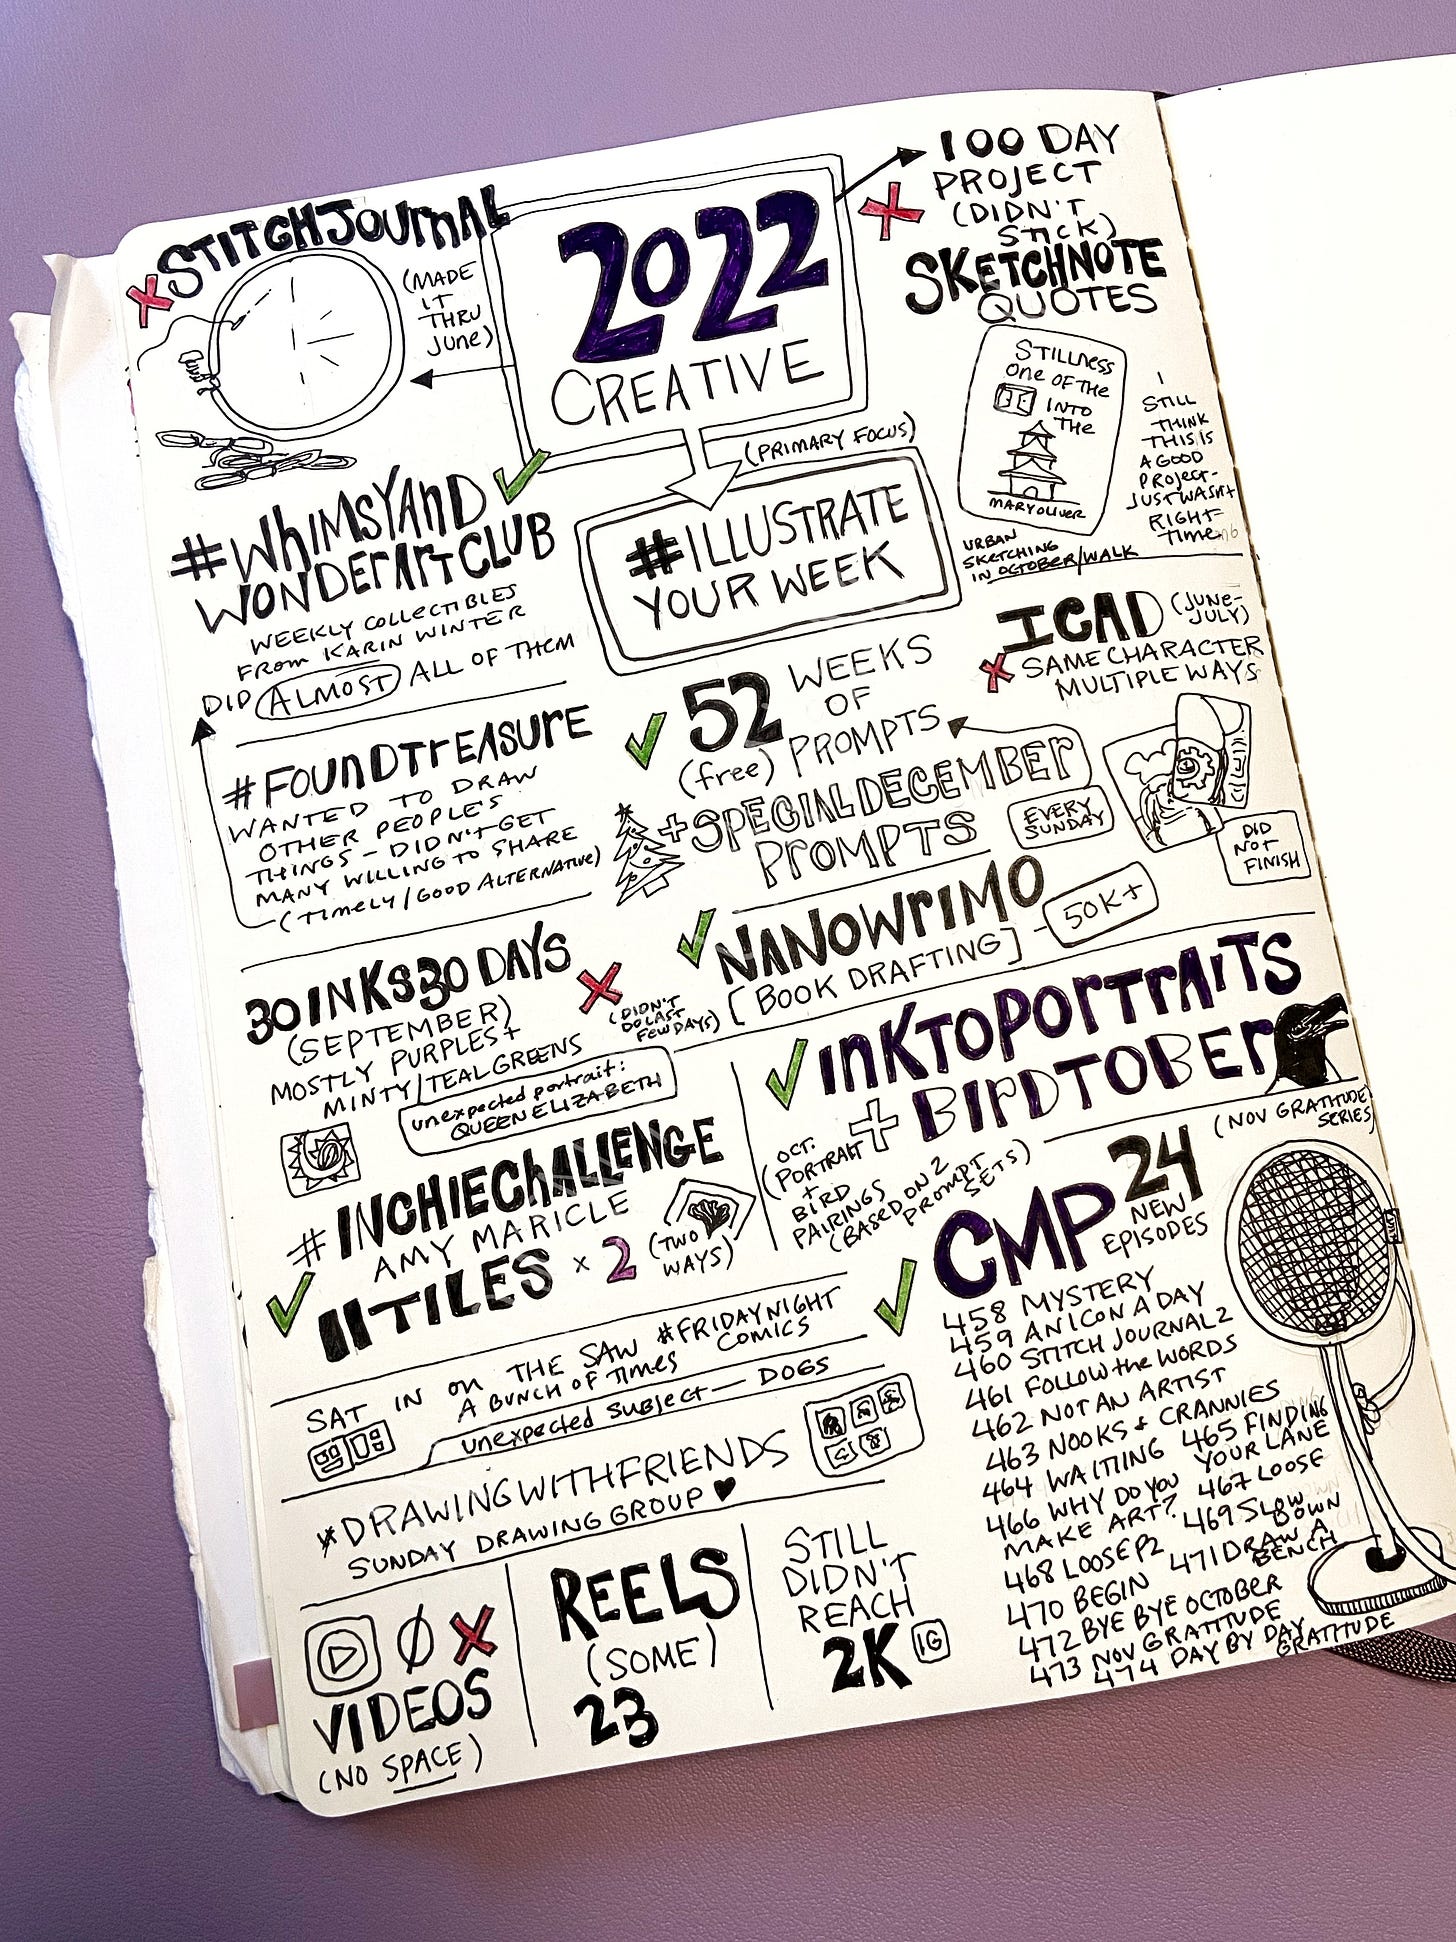 STITCHJOURNAL
(MADE
IT
THRU
June)
2022
CREATIVE
(PRIMARY FOCUS)
#ILLUSTRATE
YOUR WEEK
100 DAY
PROJECT
(DIDN'T
STICK)
SKETCHNOTE
QUOTES
STILLNESS
One OF THE
INTO
THE
MARY OLIVER
I
STILL
THINK
THIS IS
A GOOD
PROJECT-
JUST WASN'T
RIGHT
Time
URBAN
SKETCHING
IN OCTOBER/WALK
#WHIMSYAND
WONDERARTCLUB
WEEKLY COLLECTIBLES
FROM KARIN WINTER
DID ALMOST ALL OF THEM
#FOUNDTREASURE
WANTED TO DRAW
OTHER PEOPLE'S
THINGS - DIDN'T GET
MANY WILLING TO SHARE
(TIMELY/GOOD ALTERNATIVE)
52 WEEKS
OF
(free) PROMPTS
+SPECIAL DECEMBER
PROMPTS
EVERY
SUNDAY
ICAD (JUNE-
JULY)
SAME CHARACTER
MULTIPLE WAYS
DID
NOT
FINISH
NANOWRIMO
50K+
[BOOK DRAFTING]
30INKS30DAYS
(SEPTEMBER)
MOSTLY PURPLES+
MINTY/TEAL GREENS
(DIDN'T
DO LAST
FEW DAYS)
unexpected portrait:
QUEEN ELIZABETH
INKTOPORTRAITS
+ BIRDTOBER
(OCT.
PORTRAIT
+
BIRD
PAIRINGS
(BASED ON 2
PROMPT
SETS)
(NOV GRATITUDE
SERIES)
#INCHIECHALLENGE
AMY MARICLE
11 TILES x 2 (TWO
WAYS)
SAT IN ON THE SAW #FRIDAYNIGHT
COMICS
A BUNCH OF TIMES
unexpected SUBJECT — DOGS
*DRAWINGWITHFRIENDS
SUNDAY DRAWING GROUP ♥
Ø
VIDEOS
(NO SPACE)
REELS
(SOME)
23
STILL
DIDN'T
REACH
2K IG
CMP 24
NEW
EPISODES
458 MYSTERY
459 AN ICON A DAY
460 STITCH JOURNAL 2
461 FOLLOW the WORDS
462 NOT AN ARTIST
463 NOOKS & CRANNIES
464 WAITING
465 FINDING
YOUR LANE
466 WHY DO YOU
MAKE ART?
467 LOOSE
468 LOOSE P2
469 SLOW
DOWN
470 BEGIN
471 DRAW A
BENCH
472 BYE BYE OCTOBER
473 NOV GRATITUDE
474 DAY BY DAY
GRATITUDE